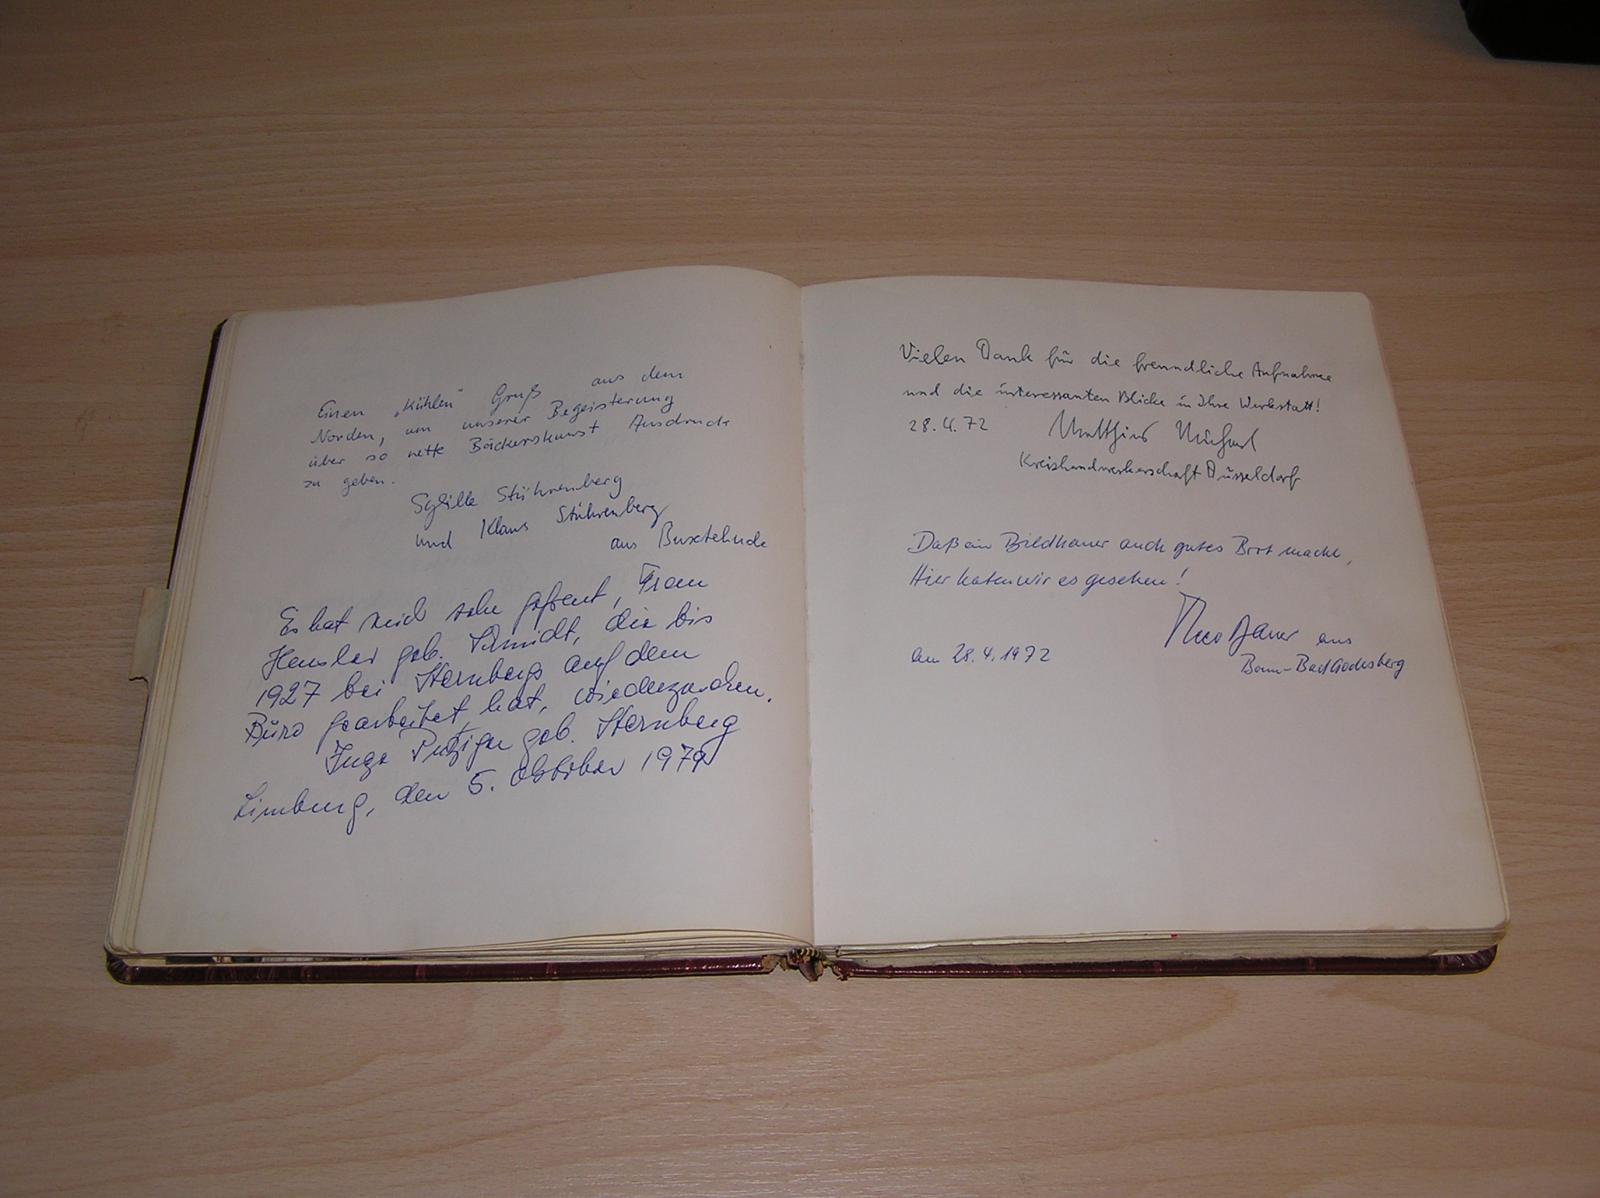 Einen „kühlen“ Gruß aus dem
Norden, um unserer Begeisterung
über so nette Bäckerskunst Ausdruck
zu geben.
Sybille Stührenberg
und Klaus Stührenberg
aus Buxtehude
Es hat mich sehr gefreut, Frau
geb. Schmidt, die bis
1927 bei Sternbergs auf dem
Büro gearbeitet hat, wiederzusehen.
Inge geb. Sternberg
Limburg, den 5. Oktober 1979
Vielen Dank für die freundliche Aufnahme
und die interessanten Blicke in Ihre Werkstatt!
28.4.72 Matthias Michael
Kreishandwerkerschaft Düsseldorf
Daß ein Bildhauer auch gutes Brot macht,
Hier haben wir es gesehen!
aus
am 28.4.1972
Bonn-Bad Godesberg